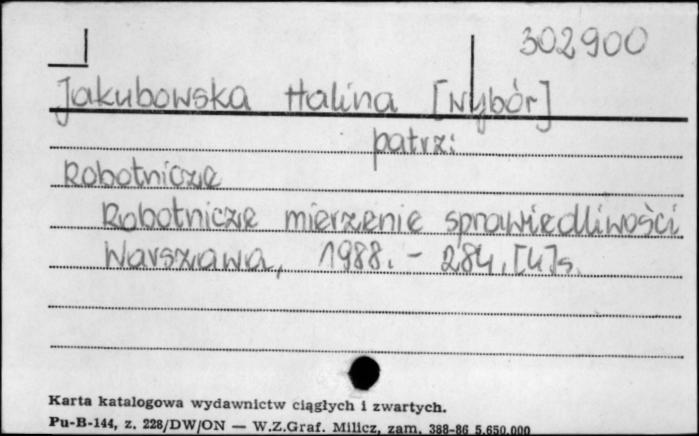 302900
Jakubowska Halina [wybór]
patrz:
Robotnicze
Robotnicze mierzenie sprawiedliwości
Warszawa, 1988. - 284, [4] s.
Karta katalogowa wydawnictw ciągłych i zwartych.
Pu-B-144, z. 228/DW/ON — W.Z.Graf. Milicz, zam. 388-86 5.650.000